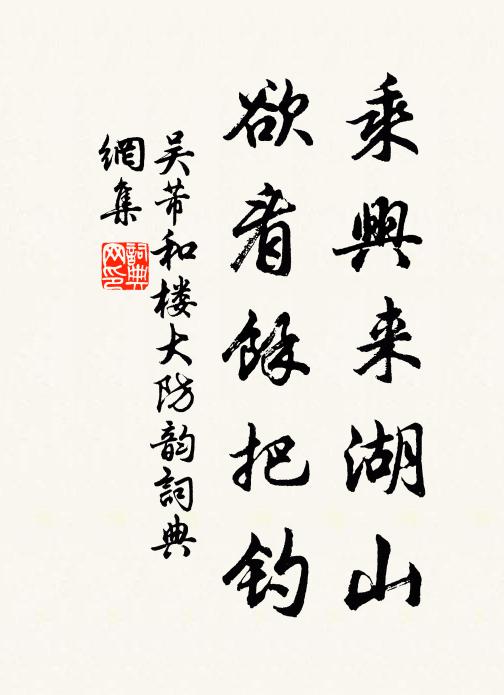 乘興来湖山
欲看餘把钓
吴芾和楼大防韵詞典
網集
詞典网印